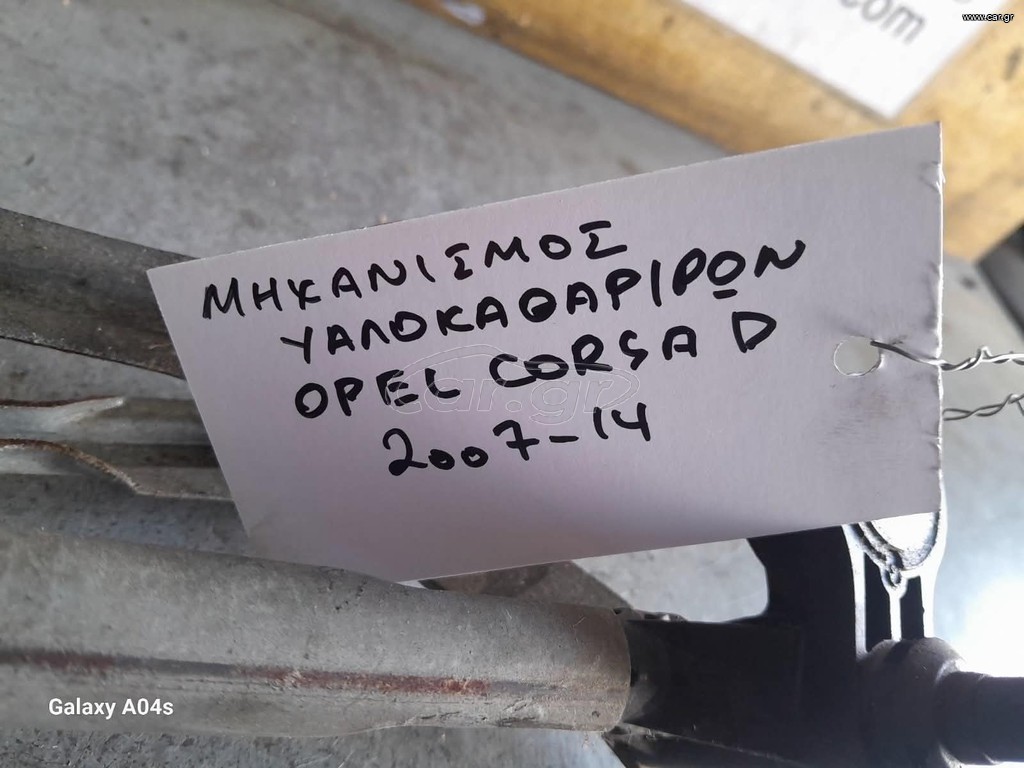 www.car.gr
.com
ΜΗΧΑΝΙΣΜΟΣ
ΥΑΛΟΚΑΘΑΡΙΡΩΝ
OPEL CORSA D
2007-14
car.gr
Galaxy A04s